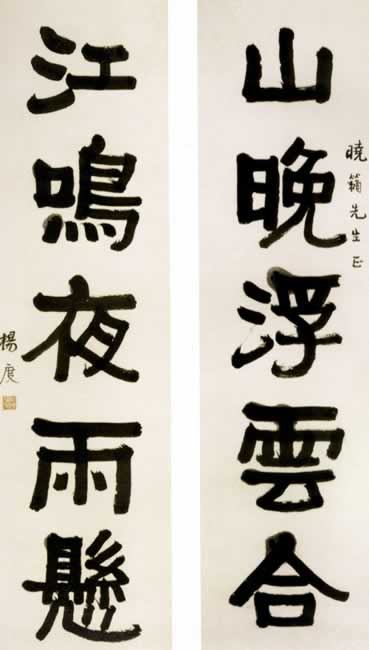 山晚浮雲合
曉籟先生正
江鳴夜雨懸
楊度